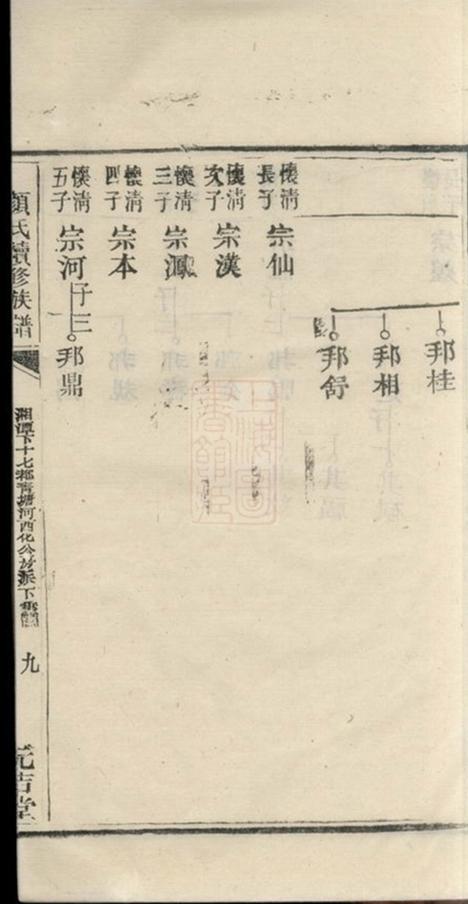 邦桂
邦相
邦舒
懷清長子 宗仙
懷清次子 宗漢
懷清三子 宗鳳
懷清四子 宗本
懷清五子 宗河 子三 邦鼎
顏氏續修族譜
湘潭下十七都青塘河西化公
派下
九
元吉堂
上海圖書館藏